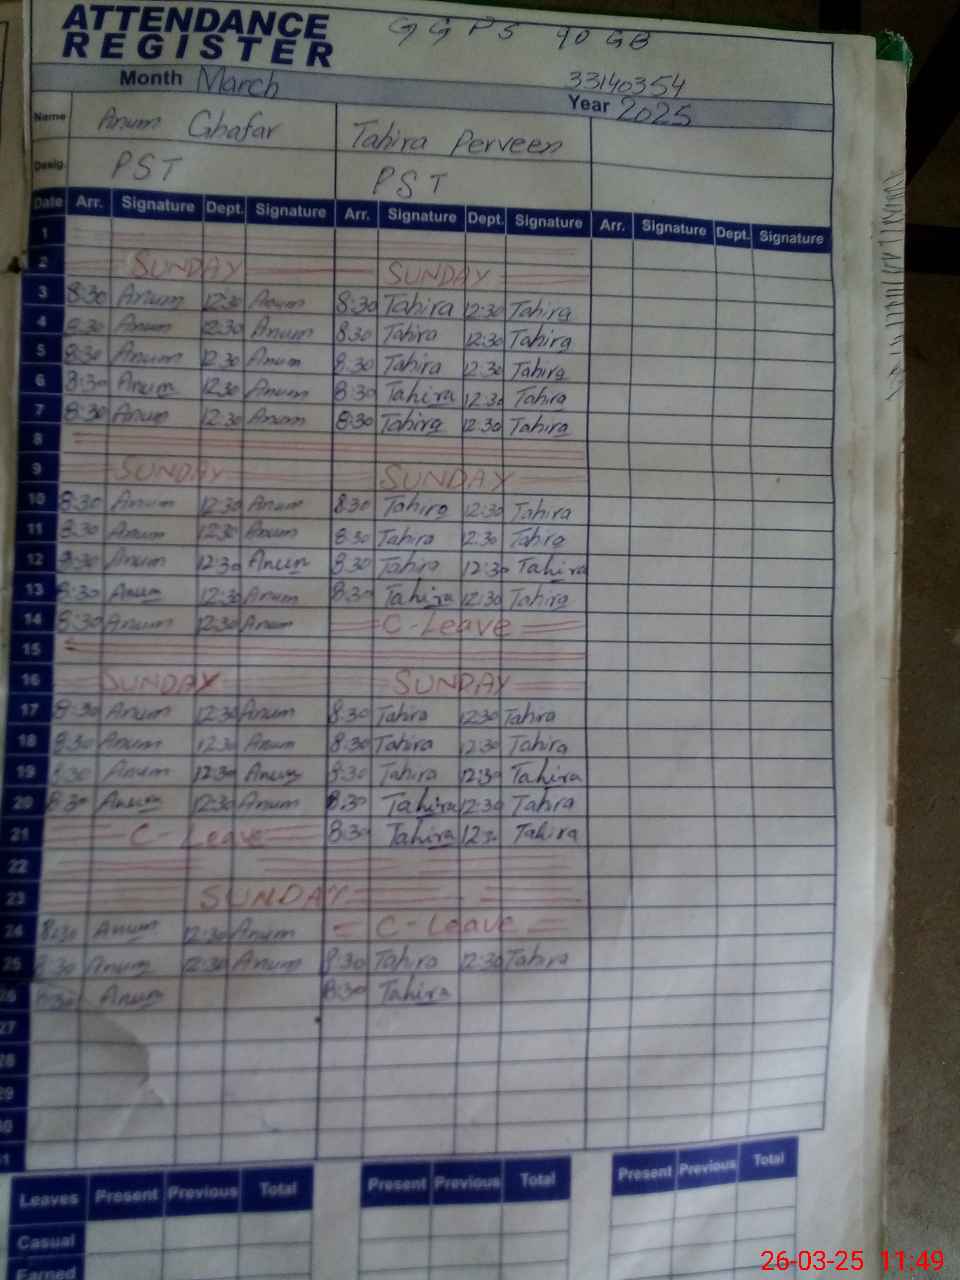 ATTENDANCE
REGISTER
GGPS 90 GB
33140354
Month March
Year 2025
Name Anum Ghafar Tahira Perveen
Desig. PST PST
Date Arr. Signature Dept. Signature Arr. Signature Dept. Signature Arr. Signature Dept. Signature
1
2 SUNDAY SUNDAY
3 8:30 Anum 12:30 Anum 8:30 Tahira 12:30 Tahira
4 8:30 Anum 12:30 Anum 8:30 Tahira 12:30 Tahira
5 8:30 Anum 12:30 Anum 8:30 Tahira 12:30 Tahira
6 8:30 Anum 12:30 Anum 8:30 Tahira 12:30 Tahira
7 8:30 Anum 12:30 Anum 8:30 Tahira 12:30 Tahira
8
9 SUNDAY SUNDAY
10 8:30 Anum 12:30 Anum 8:30 Tahira 12:30 Tahira
11 8:30 Anum 12:30 Anum 8:30 Tahira 12:30 Tahira
12 8:30 Anum 12:30 Anum 8:30 Tahira 12:30 Tahira
13 8:30 Anum 12:30 Anum 8:30 Tahira 12:30 Tahira
14 8:30 Anum 12:30 Anum C-Leave
15
16 SUNDAY SUNDAY
17 8:30 Anum 12:30 Anum 8:30 Tahira 12:30 Tahira
18 8:30 Anum 12:30 Anum 8:30 Tahira 12:30 Tahira
19 8:30 Anum 12:30 Anum 8:30 Tahira 12:30 Tahira
20 8:30 Anum 12:30 Anum 8:30 Tahira 12:30 Tahira
21 C-Leave 8:30 Tahira 12:30 Tahira
22
23 SUNDAY
24 8:30 Anum 12:30 Anum C-Leave
25 8:30 Anum 12:30 Anum 8:30 Tahira 12:30 Tahira
26 8:30 Anum 8:30 Tahira
27
28
29
30
31
Leaves Present Previous Total Present Previous Total Present Previous Total
Casual
Earned
26-03-25 11:49